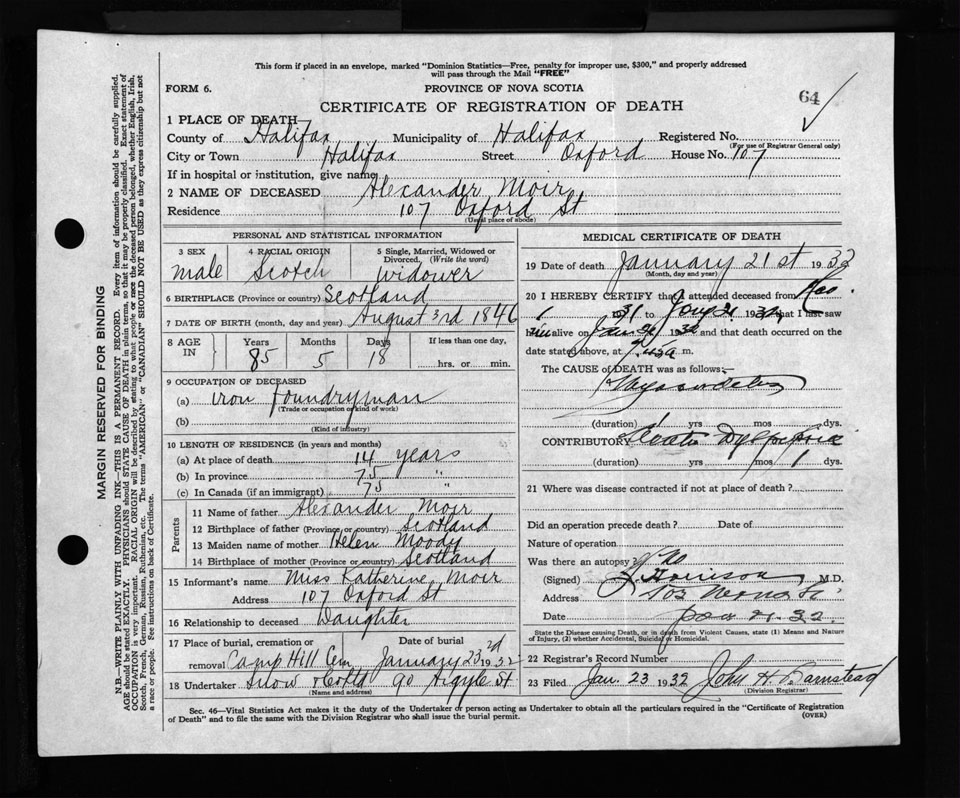 This form if placed in an envelope, marked "Dominion Statistics—Free, penalty for improper use, $300," and properly addressed
will pass through the Mail "FREE"
FORM 6.
PROVINCE OF NOVA SCOTIA
64
CERTIFICATE OF REGISTRATION OF DEATH
1 PLACE OF DEATH
County of Halifax Municipality of Halifax Registered No.
(For use of Registrar General only)
City or Town Halifax Street Oxford House No. 107
If in hospital or institution, give name
2 NAME OF DECEASED Alexander Moir
Residence 107 Oxford St
(Usual place of abode)
PERSONAL AND STATISTICAL INFORMATION
3 SEX 4 RACIAL ORIGIN 5 Single, Married, Widowed or
Divorced. (Write the word)
male Scotch widower
6 BIRTHPLACE (Province or country) Scotland
7 DATE OF BIRTH (month, day and year) August 3rd 1846
8 AGE IN Years Months Days If less than one day,
85 5 18 hrs. or min.
9 OCCUPATION OF DECEASED
(a) iron foundryman
(Trade or occupation or kind of work)
(b)
(Kind of industry)
10 LENGTH OF RESIDENCE (in years and months)
(a) At place of death 14 years
(b) In province 75 "
(c) In Canada (if an immigrant) 75 "
Parents
11 Name of father Alexander Moir
12 Birthplace of father (Province or country) Scotland
13 Maiden name of mother Helen Moody
14 Birthplace of mother (Province or country) Scotland
15 Informant's name Miss Katherine Moir
Address 107 Oxford St
16 Relationship to deceased Daughter
17 Place of burial, cremation or Date of burial
removal Camp Hill Cem January 23rd 1932
18 Undertaker Snow & Co Ltd 90 Argyle St
(Name and address)
MEDICAL CERTIFICATE OF DEATH
19 Date of death January 21st 1932
(Month, day and year)
20 I HEREBY CERTIFY that I attended deceased from Nov
1 1931 to Jany 21 1932, that I last saw
him alive on Jan 21 1932 and that death occurred on
date stated above, at m.
The CAUSE of DEATH was as follows:—
(duration) yrs mos. dys.
CONTRIBUTORY
(duration) yrs mos 1 dys.
21 Where was disease contracted if not at place of death?
Did an operation precede death? Date of
Nature of operation
Was there an autopsy? No
(Signed) Morrison, M.D.
Address
Date Jan 21. 32.
State the Disease causing Death, or in death from Violent Causes, state (1) Means and Nature
of Injury, (2) whether Accidental, Suicidal or Homicidal.
22 Registrar's Record Number
23 Filed Jan. 23 1932 John H. Barnstead
(Division Registrar)
Sec. 46—Vital Statistics Act makes it the duty of the Undertaker or person acting as Undertaker to obtain all the particulars required in the "Certificate of Registration
of Death" and to file the same with the Division Registrar who shall issue the burial permit.
(OVER)
MARGIN RESERVED FOR BINDING
N.B.—WRITE PLAINLY WITH UNFADING INK—THIS IS A PERMANENT RECORD. Every item of information should be carefully supplied.
AGE should be stated EXACTLY. PHYSICIANS should STATE CAUSE OF DEATH in plain terms, so that it may be properly classified. Exact statement of
OCCUPATION is very important. RACIAL ORIGIN will be described by stating to what people or race the deceased person belonged, whether English, Irish,
Scotch, French, German, Russian, Ruthenian, etc. The terms "AMERICAN" or "CANADIAN" SHOULD NOT BE USED as they express citizenship but not
a race or people. See instructions on back of Certificate.